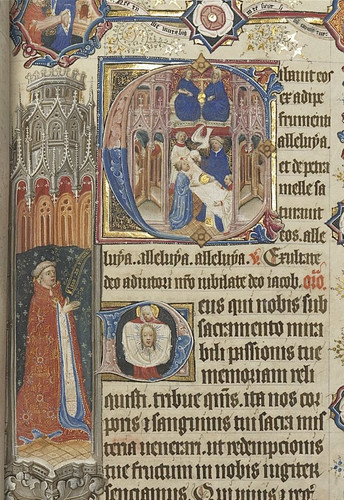 Cibauit eos
ex adipe
frumenti
alleluya.
et de petra
melle sa
turauit
eos. alle
luya. alleluya. alleluya. v Exultate
deo adiutori nr̄o iubilate deo iacob. or̄o.
Deus qui nobis sub
sacramento mira
bili passionis tue
memoriam reli
quisti. tribue qm̄s. ita nos cor
poris ⁊ sanguinis tui sacra mis
teria uenerari. ut redempcionis
tue fructum in nobis iugiter
senciamus. Qui uiuis